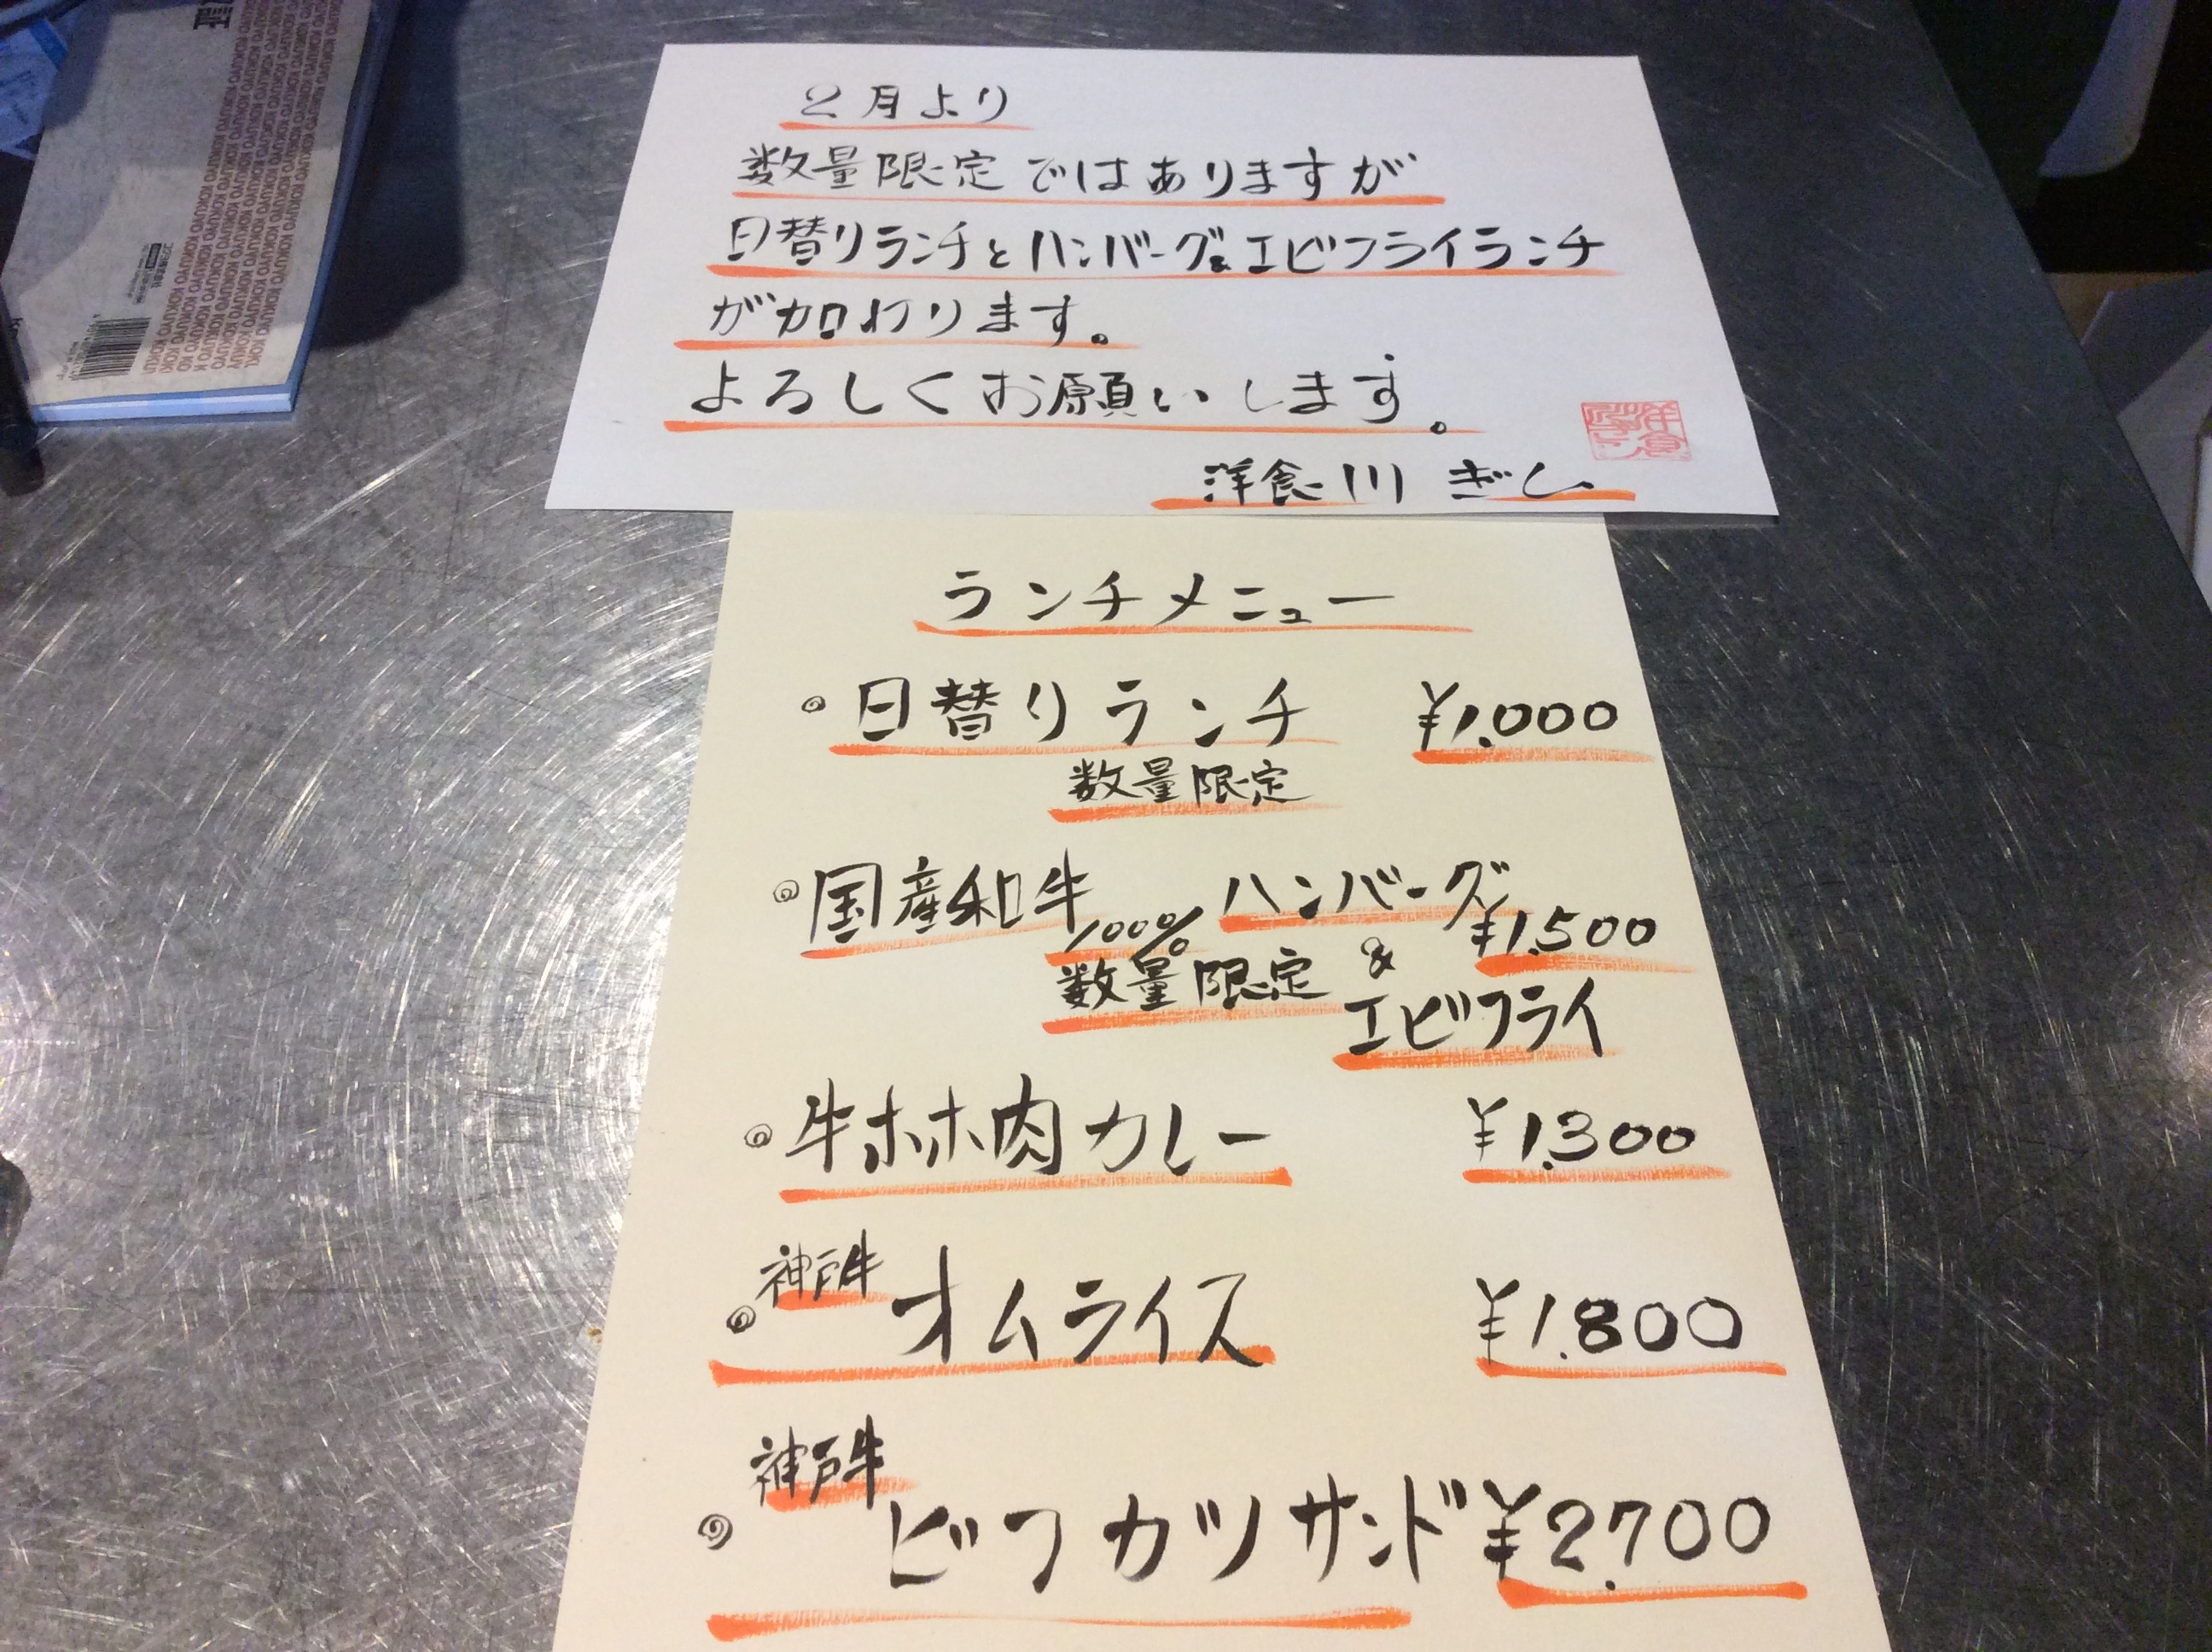 2月より
数量限定ではありますが
日替りランチとハンバーグ&エビフライランチ
が加わります。
よろしくお願いします。
洋食川ぎし
ランチメニュー
日替りランチ ¥1.000
数量限定
国産和牛100%ハンバーグ ¥1.500
数量限定 & エビフライ
牛ホホ肉カレー ¥1.300
神戸牛
オムライス ¥1.800
神戸牛
ビフカツサンド ¥2.700
KOKUYO KOKUYO KOKUYO KOKUYO
証